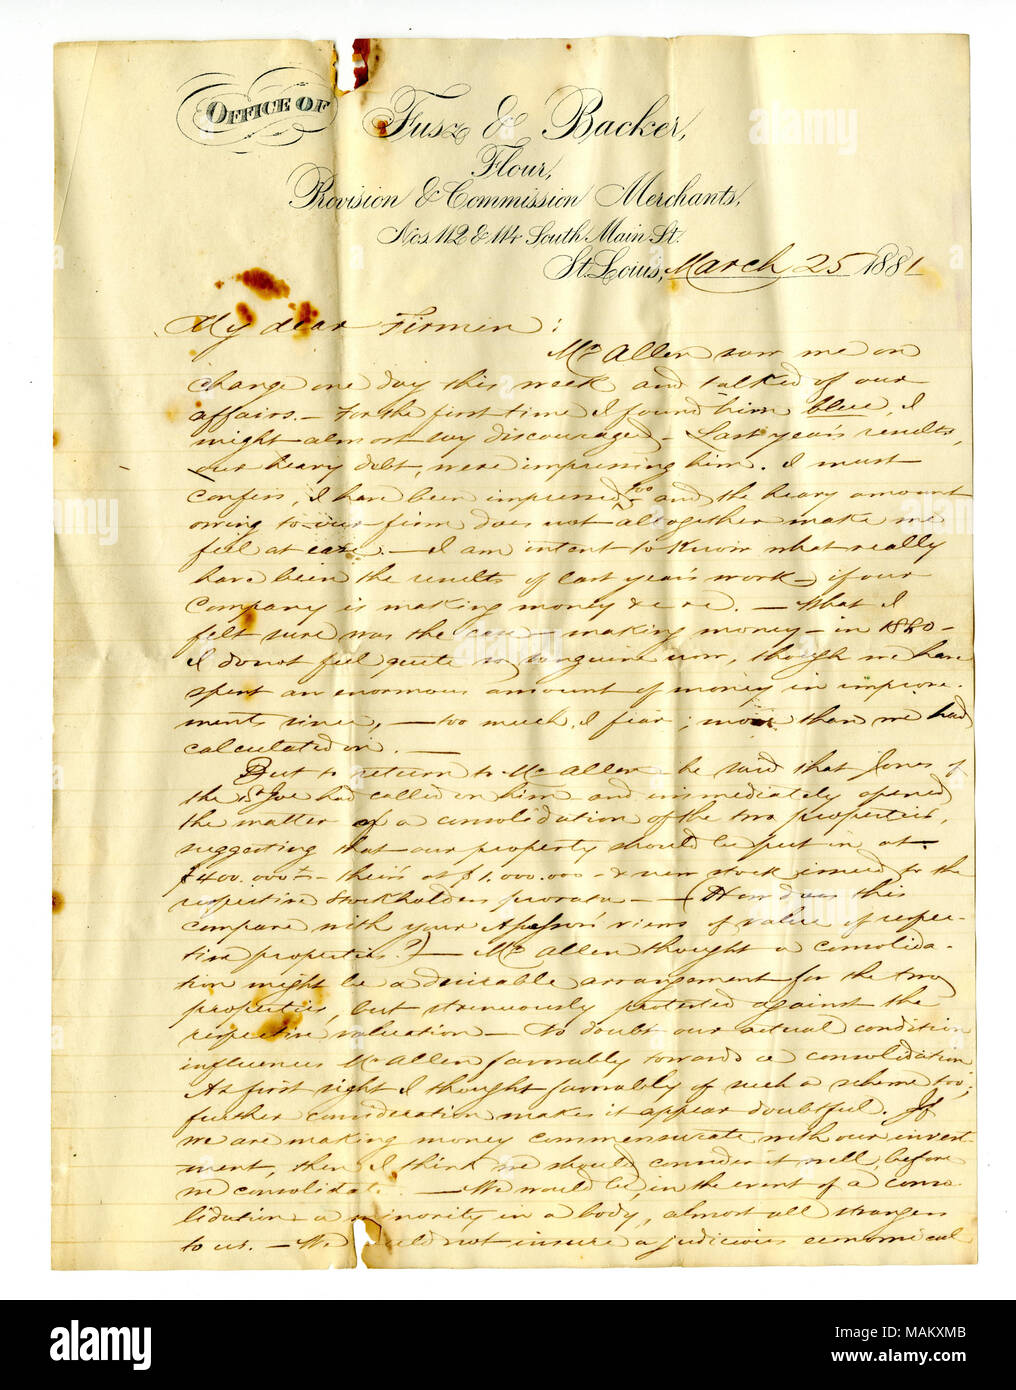 OFFICE OF
Fusz & Backer,
Flour,
Provision & Commission Merchants,
Nos. 112 & 114 South Main St.
St. Louis, March 25 1881
My dear Firmin:
Mr Allen saw me on
change one day this week and talked of our
affairs. – For the first time I found him blue, I
might almost say discouraged – Last year's results,
our heavy debt, were impressing him. I must
confess, I have been impressed too and the heavy amount
owing to our firm does not altogether make me
feel at ease. – I am intent to know what really
have been the results of last year's work – if our
Company is making money &c &c. – What I
felt sure was the case – making money – in 1880 –
I do not feel quite so sanguine now, though we have
spent an enormous amount of money in improve-
ments since, – too much, I fear; more than we had
calculated on. –
But to return to Mr Allen – he said that Jones of
the St Joe had called on him – and immediately opened
the matter of a consolidation of the two properties,
suggesting that our property should be put in at
$400.000 – theirs at $1.000.000 – & new stock issued to the
respective Stockholders prorata – (How does this
compare with your views of value of respec-
tive properties?) – Mr Allen thought a consolida-
tion might be a desirable arrangement for the two
properties, but strenuously protested against the
respective valuation – No doubt our actual condition
influences Mr Allen favorably towards a consolidation
At first sight I thought favorably of such a scheme too;
further consideration makes it appear doubtful. If
we are making money commensurate with our invest-
ment, then I think we should consider it well, before
we consolidat. – We would be, in the event of a conso-
lidation a minority in a body, almost all strangers
to us. – We could not insure a judicious economical
alamy
alamy
alamy
Image ID: MAKXMB
www.alamy.com